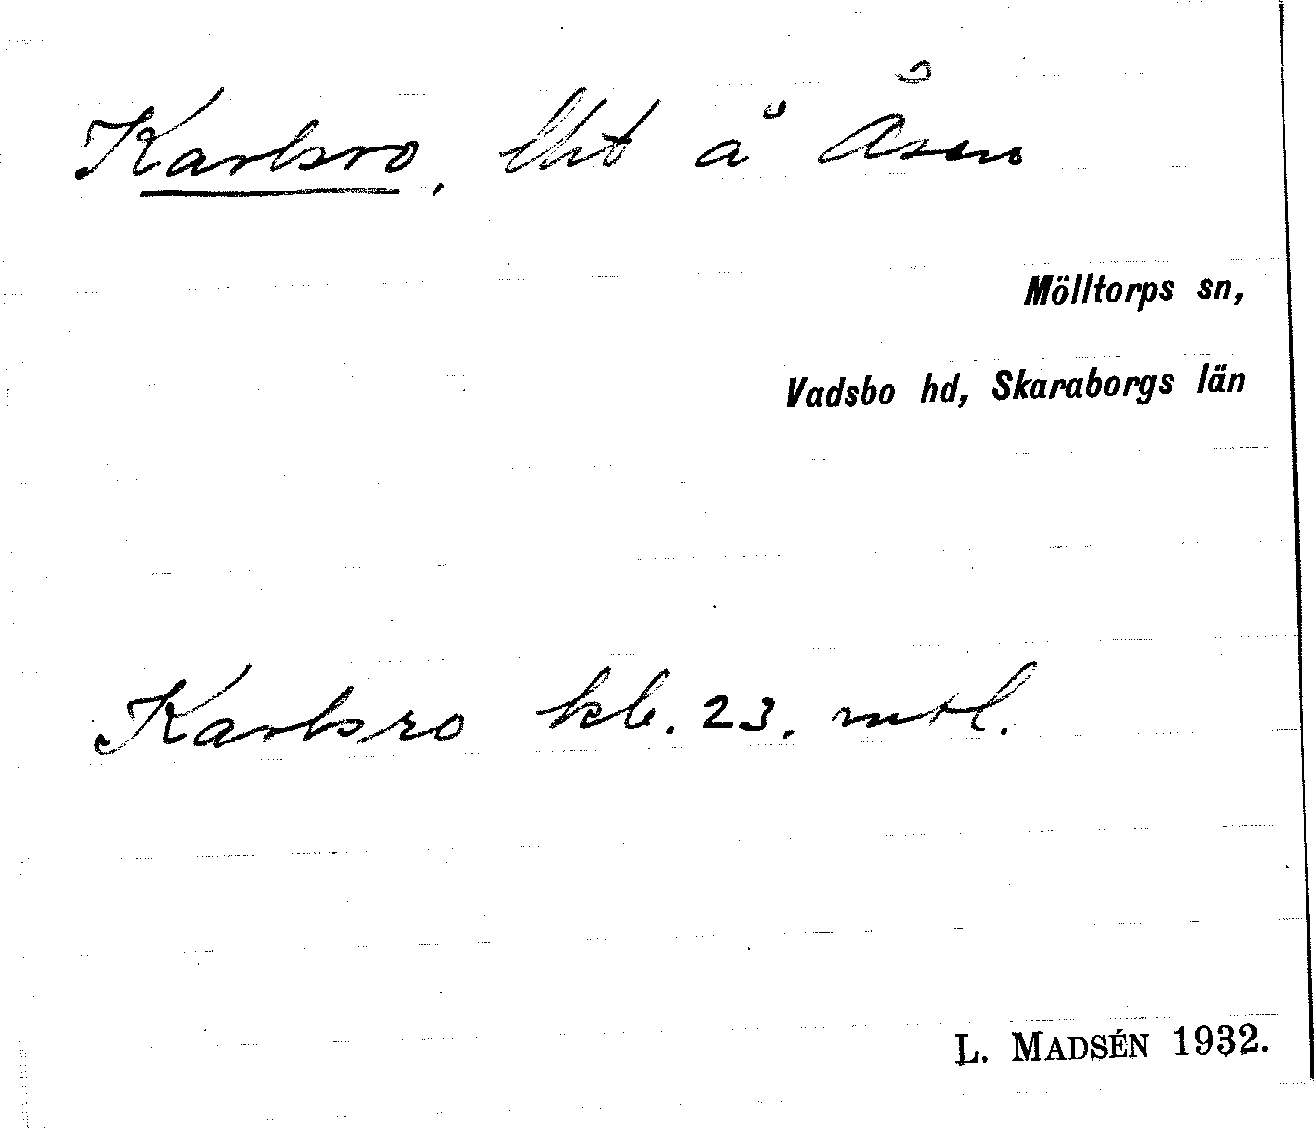 Karlsro, lht å Åsen
Mölltorps sn,
Vadsbo hd, Skaraborgs län
Karlsro kb. 23. mtl.
L. MADSÉN 1932.